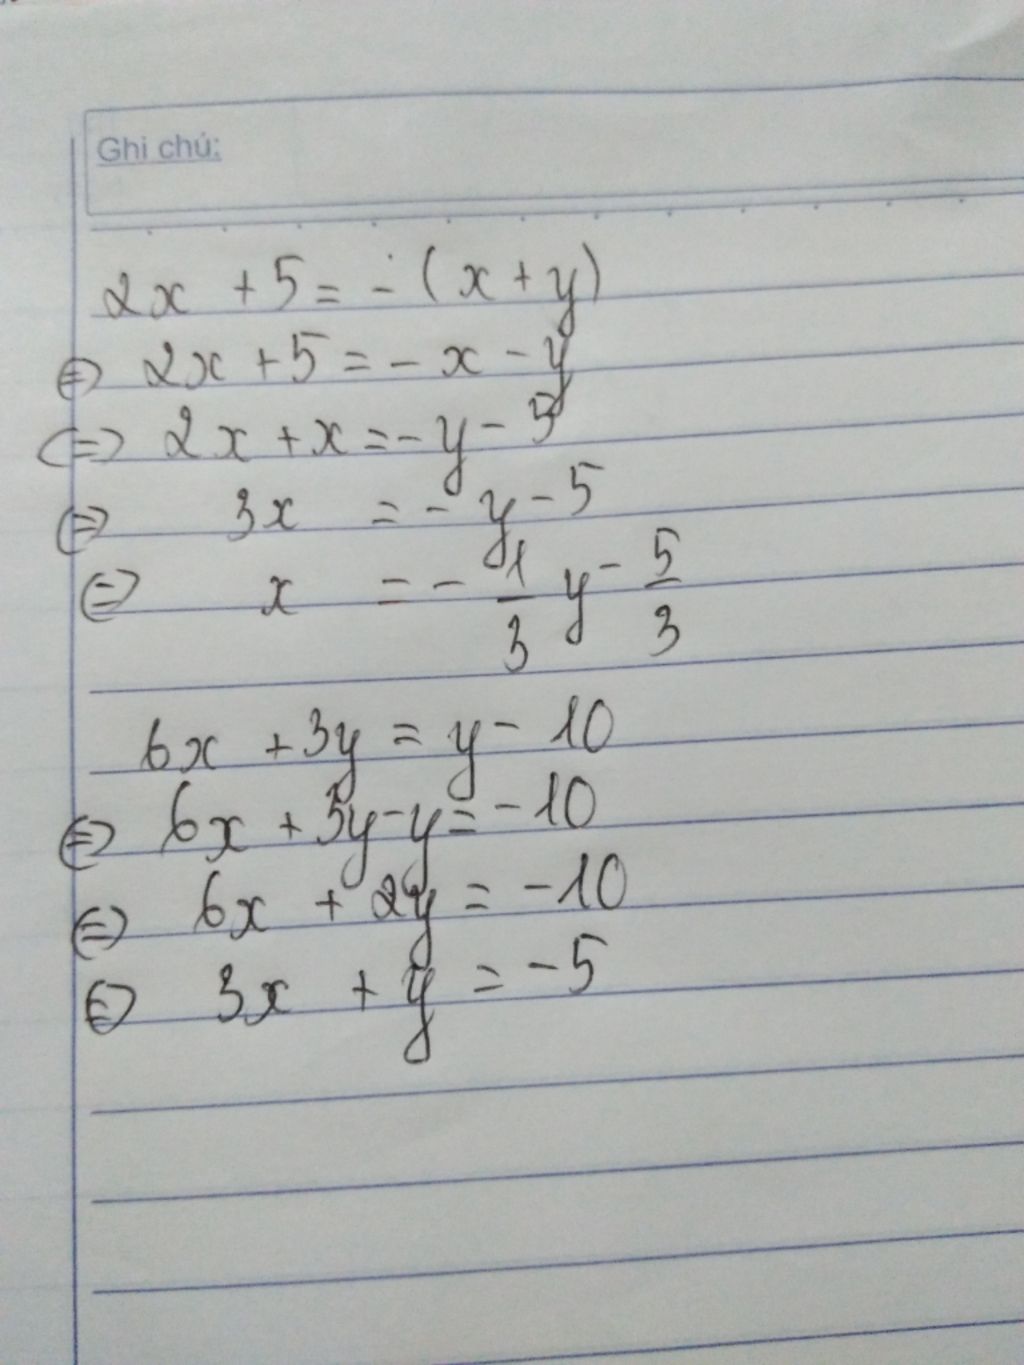 Ghi chú:
2x + 5 = - (x + y)
⇔ 2x + 5 = - x - y
⇔ 2x + x = - y - 5
⇔ 3x = - y - 5
⇔ x = - 1/3 y - 5/3
6x + 3y = y - 10
⇔ 6x + 3y - y = - 10
⇔ 6x + 2y = - 10
⇔ 3x + y = - 5